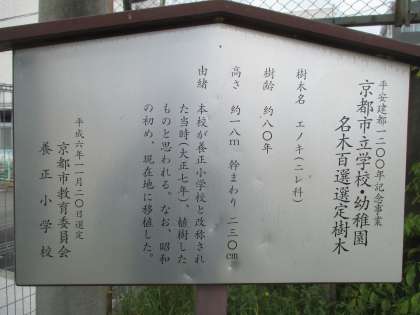 平安建都一二〇〇年記念事業
京都市立学校・幼稚園
名木百選選定樹木
樹木名 エノキ(ニレ科)
樹齢 約八〇年
高さ 約一八m 幹まわり 二三〇cm
由緒 本校が養正小学校と改称され
た当時(大正七年)、植樹した
ものと思われる。なお、昭和
の初め、現在地に移植した。
平成六年一一月二〇日選定
京都市教育委員会
養正小学校